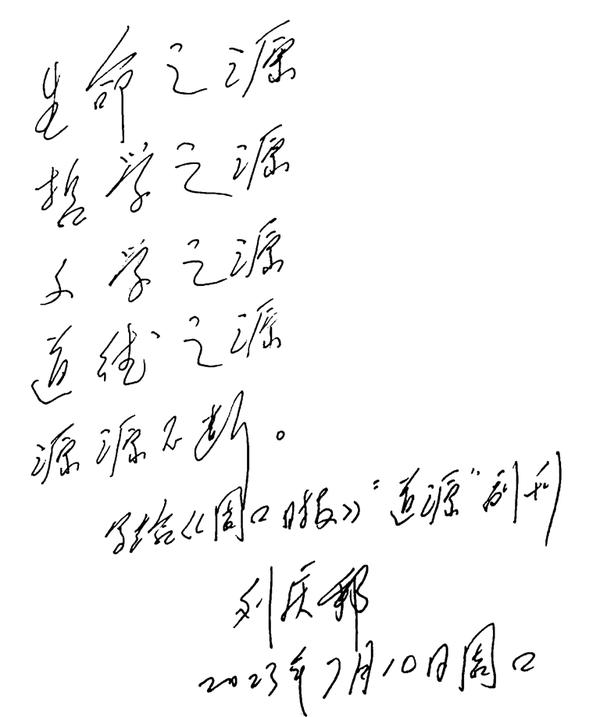 生命之源
哲学之源
文学之源
道德之源
源源不断。
写给《周口日报》“道源”副刊
刘庆邦
2023年7月10日周口